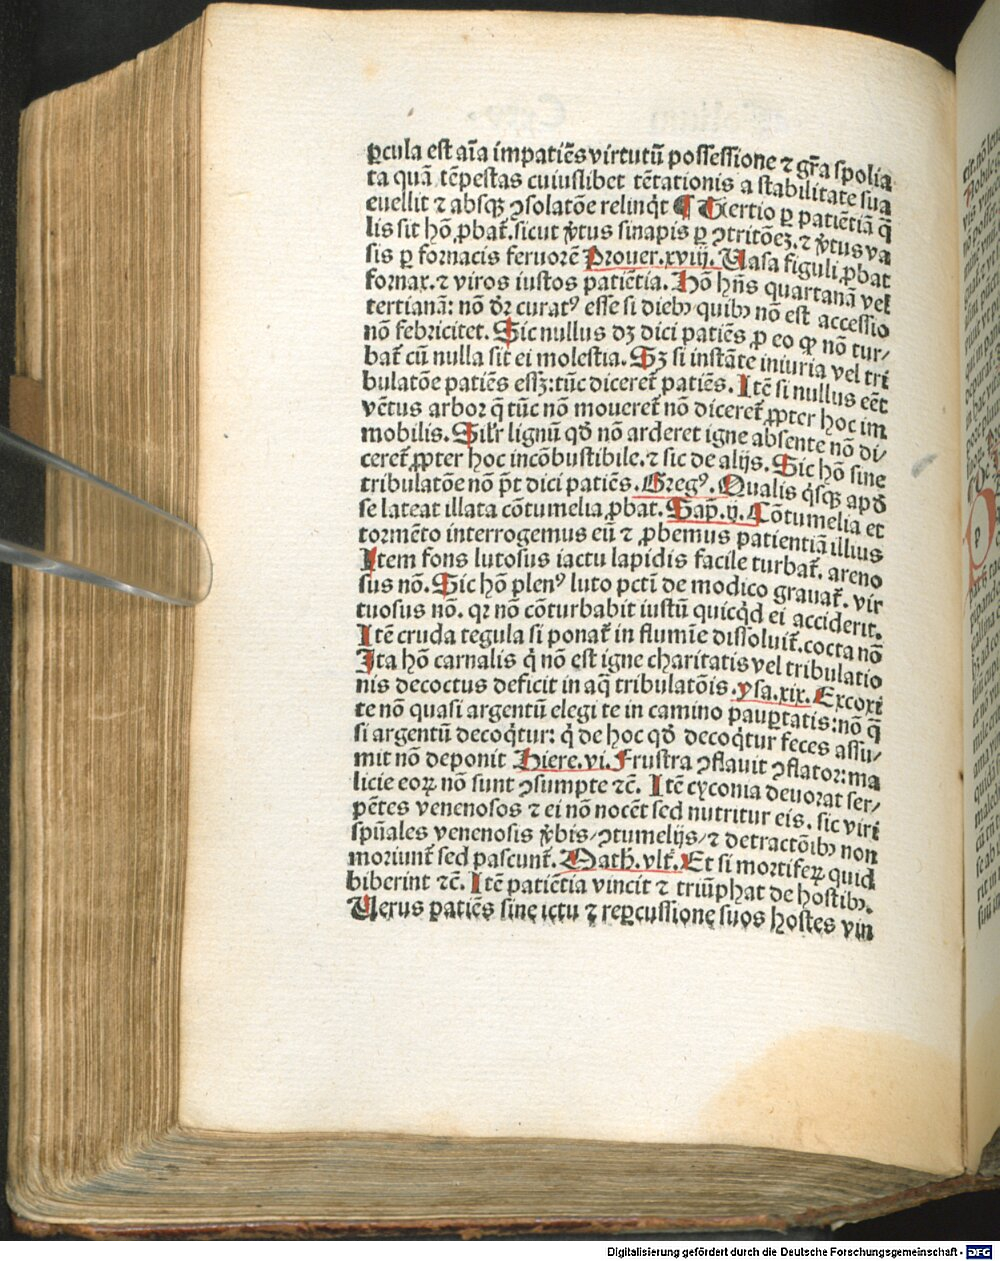 ꝑcula est aīa impatiēs virtutū possessione ⁊ gr̄a spolia
ta quā tēpestas cuiuslibet tētationis a stabilitate sua
euellit ⁊ absqꝫ ꝯsolatōe relinq̄t ¶ Tertio ꝑ patiētiā q̄
lis sit hō ꝓbat̄. sicut v̄tus sinapis ꝑ ꝯtritōeꝫ. ⁊ v̄tus va
sis ꝑ fornacis feruorē Prouer. xviij. Uasa figuli ꝓbat
fornax. ⁊ viros iustos patiētia. Hō hn̄s quartanā vel
tertianā: nō dr̄ curatꝰ esse si diebꝫ quibꝫ nō est accessio
nō febricitet. Sic nullus dꝫ dici patiēs ꝓ eo qꝙ nō tur⸗
bat̄ cū nulla sit ei molestia. Sꝫ si instāte iniuria vel tri
bulatōe patiēs essꝫ: tūc diceret̄ patiēs. Itē si nullus eēt
vētus arbor q̄ tūc nō moueret̄ nō diceret̄ ꝓpter hoc im
mobilis. Sil̄r lignū qd̄ nō arderet igne absente nō di⸗
ceret̄ ꝓpter hoc incōbustibile. ⁊ sic de alijs. Sic hō sine
tribulatōe nō pōt dici patiēs. Gregꝰ. Qualis q̄sqꝫ apd̄
se lateat illata cōtumelia ꝓbat. Sap̄. ij. Cōtumelia et
tormēto interrogemus eū ⁊ ꝓbemus patientiā illius
Item fons lutosus iactu lapidis facile turbat̄. areno
sus nō. Sic hō plenꝰ luto pctī de modico grauat̄. vir
tuosus nō. qꝛ nō cōturbabit iustū quicq̄d ei acciderit.
Itē cruda tegula si ponat̄ in flumīe dissoluit̄. cocta nō
Ita hō carnalis q̄ nō est igne charitatis vel tribulatio
nis decoctus deficit in aq̄ tribulatōis. ysa. xix. Excoxi
te nō quasi argentū elegi te in camino pauꝑtatis: nō q̄
si argentū decoq̄tur: q̄ de hoc qd̄ decoq̄tur feces assu⸗
mit nō deponit Hiere. vi. Frustra ꝯflauit ꝯflator: ma
licie eoꝝ nō sunt ꝯsumpte ⁊c̄. Itē cyconia deuorat ser⸗
pētes venenosos ⁊ ei nō nocēt sed nutritur eis. sic viri
spūales venenosis v̄bis/ ꝯtumelijs/ ⁊ detractōibꝫ non
moriunt̄ sed pascunt̄. Math. vlt̄. Et si mortiferꝝ quid
biberint ⁊c̄. Itē patiētia vincit ⁊ triūphat de hostibꝫ.
Uerus patiēs sine ictu ⁊ reꝑcussione suos hostes vin
Digitalisierung gefördert durch die Deutsche Forschungsgemeinschaft - DFG